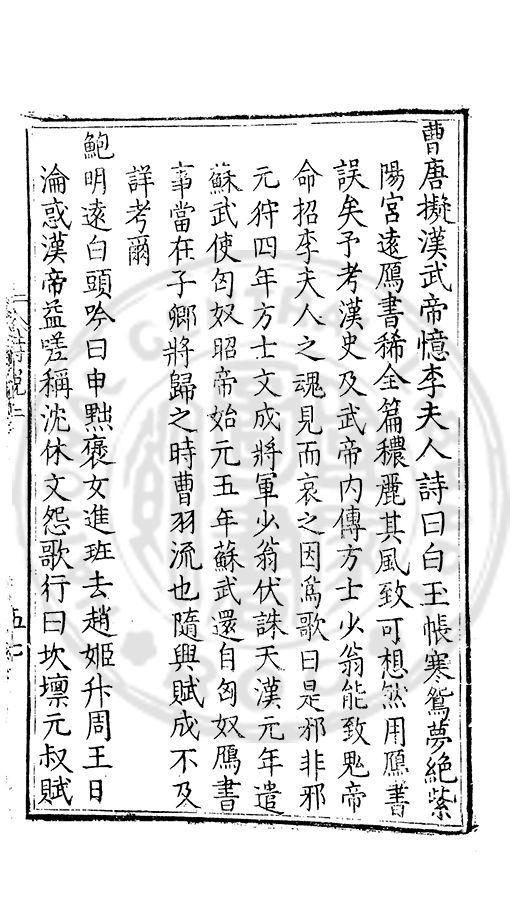 曹唐擬漢武帝憶李夫人詩曰白玉帳寒鴛夢絶紫
陽宮遠鴈書稀全篇穠麗其風致可想然用鴈書
誤矣予考漢史及武帝内傳方士少翁能致鬼帝
命招李夫人之魂見而哀之因爲歌曰是邪非邪
元狩四年方士文成將軍少翁伏誅天漢元年遣
蘇武使匈奴昭帝始元五年蘇武還自匈奴鴈書
事當在子卿將歸之時曹羽流也隨興賦成不及
詳考爾
鮑明遠白頭吟曰申黜褒女進班去趙姬升周王日
淪惑漢帝益嗟稱沈休文怨歌行曰坎壈元叔賦